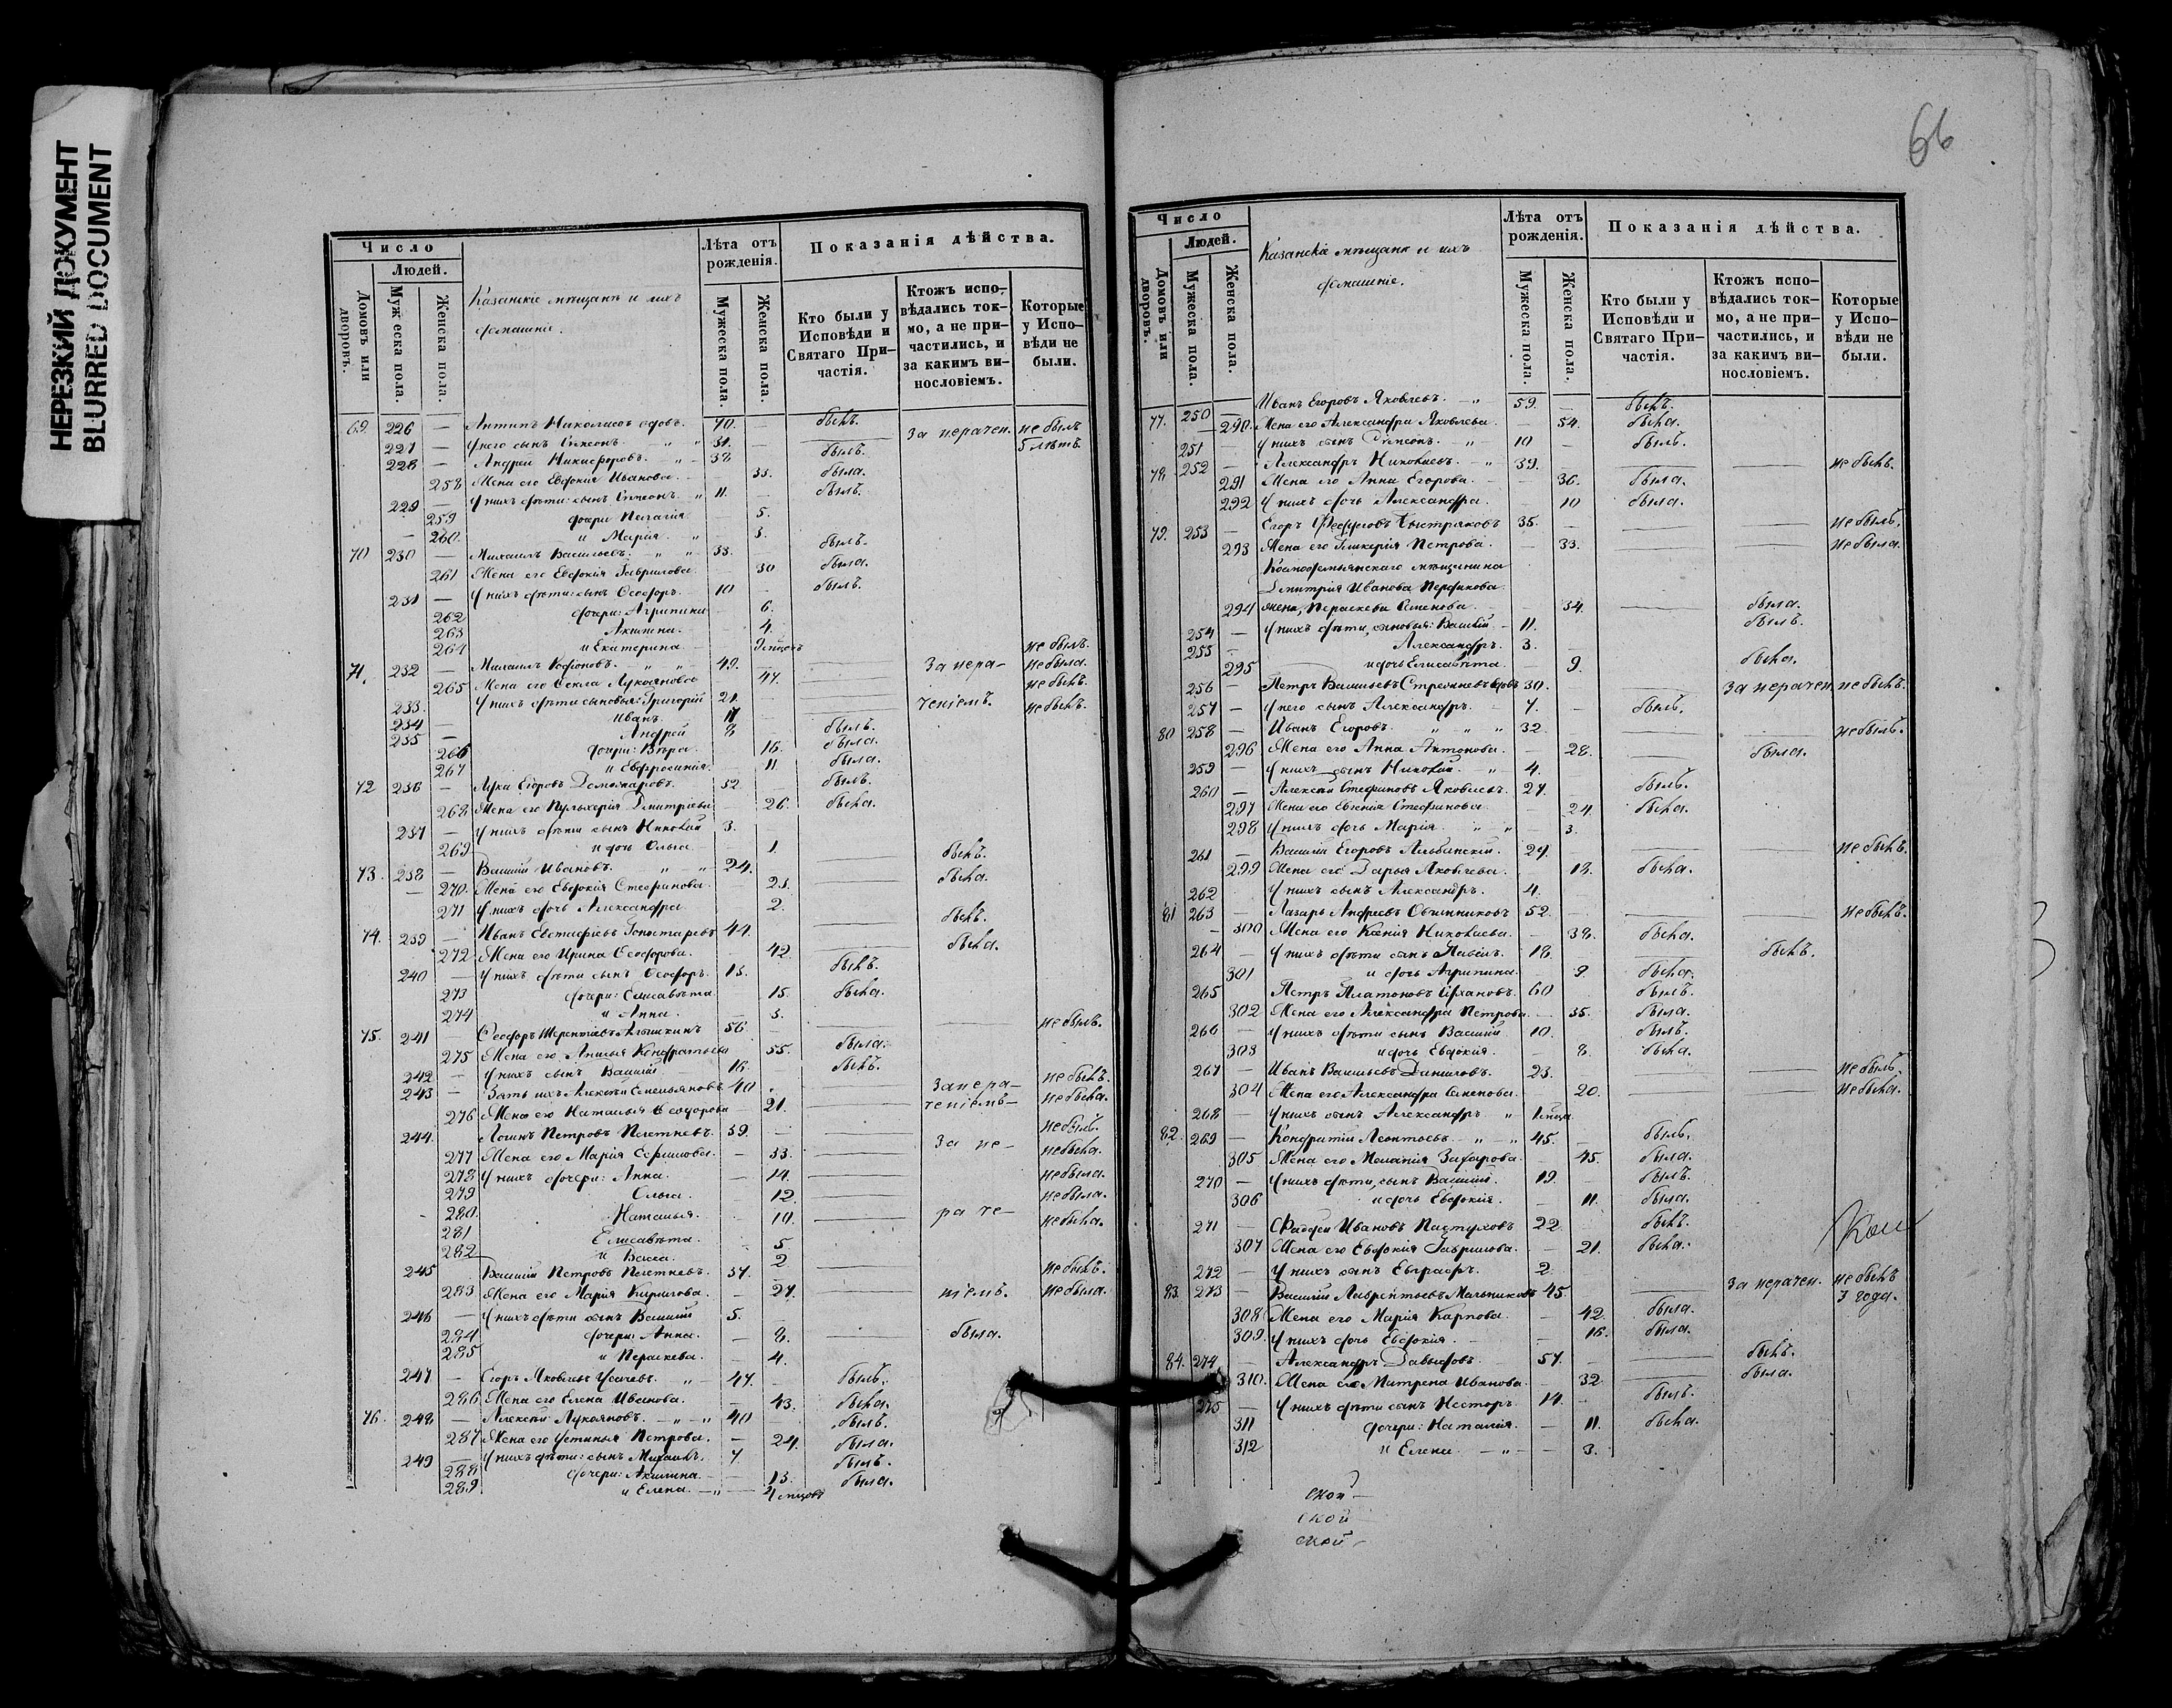 НЕРЕЗКИЙ ДОКУМЕНТ
BLURRED DOCUMENT
Число
Людей.
Домовъ или дворовъ.
Мужеска пола.
Женска пола.
Казанскіе мѣщане и ихъ
домашніе.
Лѣта отъ рожденія.
Мужеска пола.
Женска пола.
Показанія дѣйства.
Кто были у Исповѣди и Святаго При-частія.
Ктожъ испо-вѣдались ток-мо, а не при-частились, и за какимъ ви-нословіемъ.
Которые у Испо-вѣди не были.
69. 226 — Антипъ Николаевъ вдовъ. 70. — былъ.
227 — У него сынъ Симеонъ 31. — за нерачен. не былъ 5 лѣтъ.
228 — Андрей Никифоровъ. 38 — былъ.
258 Жена его Евдокія Иванова. — 33. была.
229 — У нихъ дѣти: сынъ Симеонъ 11. — былъ.
259 дочери Пелагія — 5.
— 260. и Марія. 3.
70 230 — Михаилъ Васильевъ. 33. — былъ.
261 Жена его Евдокія Гаврилова. 30 была.
231 — У нихъ дѣти: сынъ Ѳеодоръ. 10 — былъ.
262 дочери: Агрипина — 6.
263 Акилина. 4.
264 и Екатерина — 9 мѣсяцъ
71. 232 — Михаилъ Родіоновъ. 49. — не былъ.
265 Жена его Ѳекла Лукоянова 47. за нера- не была.
233. У нихъ дѣти сыновья: Григорій 21. не былъ.
234 — Иванъ. 17 — ченіемъ. не былъ.
235 — Андрей 8 былъ.
266 дочери: Вѣра. 16. была.
267 и Евфросинія. 11. была.
72 236 — Лука Егоровъ Доможаровъ. 32 былъ.
268 Жена его Пульхерія Димитріева 26. была.
237 — У нихъ дѣти сынъ Николай 3. —
269 и дочь Ольга 1.
73. 238 — Василій Ивановъ. 24. былъ.
— 270. Жена его Евдокія Стефанова. 23. была.
271 У нихъ дочь Александра 2.
74. 239 — Иванъ Евстафіевъ 44. былъ.
272 Жена его Ирина Ѳеодорова. — 42. была.
240 — У нихъ дѣти сынъ Ѳеодоръ. 13. былъ.
273 дочери: Елисавета 15. была.
274 и Анна. — 3.
75. 241 — Ѳеодоръ Терентіевъ 56. — не былъ.
275 Жена его Анисья Кондратьева 55. была.
242 — У нихъ сынъ Василій 16. былъ.
243 — Зять ихъ Алексѣй Емельяновъ 40 за нера- не былъ.
276 Жена его Наталья Ѳеодорова — 21. ченіемъ— не была.
244. Логинъ Петровъ Плетневъ. 39. — не былъ.
277 Жена его Марія Ефимова. — 33. за не- не была.
278 У нихъ дочери: Анна. — 14. не была.
279 Ольга. 12. не была.
280. Наталья. — 10. ра че- не была.
281 Елисавѣта 5
282 и Васса. 2
245 Василій Петровъ Плетневъ. 37. не былъ.
283 Жена его Марія Кирилова. — 27. ніемъ. не была.
246 — У нихъ дѣти сынъ Василій 5. —
284 дочери: Анна. — 8. была.
285 и Параскева. — 4.
247 — Егоръ Яковлевъ Усачевъ. 47. — былъ.
286 Жена его Елена Ивanova. — 43. была.
76. 248 — Алексѣй Лукояновъ. 40 — былъ.
287 Жена его Устинья Петрова. — 24. была.
249 — У нихъ дѣти: сынъ Михаилъ. 7 былъ.
288 дочери: Акилина. — 13. была.
289 и Елена. — 4 мѣсяцовъ
66
Число
Людей.
Домовъ или дворовъ.
Мужеска пола.
Женска пола.
Казанскіе мѣщане и ихъ
домашніе.
Лѣта отъ рожденія.
Мужеска пола.
Женска пола.
Показанія дѣйства.
Кто были у Исповѣди и Святаго При-частія.
Ктожъ испо-вѣдались ток-мо, а не при-частились, и за какимъ ви-нословіемъ.
Которые у Испо-вѣди не были.
77. 250 — Иванъ Егоровъ Яковлевъ. 59. — былъ.
— 290. Жена его Александра Яковлева. — 54. была.
251 У нихъ сынъ Симеонъ. 10 — былъ.
78 252 — Александръ Николаевъ. 39. не былъ.
291 Жена его Анна Егорова. — 36. была.
292 У нихъ дочь Александра. 10 была.
79. 253 — Егоръ Быстряковъ 35. — не былъ.
293 Жена его Гликерія Петрова. — 33. не была.
Козмодемьянскаго мѣщанина
Димитрія Иванова
294 жена, Параскева Семенова. — 34. была.
254 — У нихъ дѣти, сыновья: Василій — 11. былъ.
255 — Александръ. 3.
295 и дочь Елисавѣта. — 9. была.
256 — Петръ Васильевъ вдовъ 30. — за нерачен. не былъ.
257 — У него сынъ Александръ. — 7. — былъ.
80 258 — Иванъ Егоровъ. 32. не былъ.
296 Жена его Анна Антонова. — 28. была.
259 — У нихъ сынъ Николай. 4.
260 — Алексѣй Стефановъ Яковлевъ. 27. — былъ.
297 Жена его Евгенія Стефанова. 24. была.
298 У нихъ дочь Марія. — 3.
261 — Василій Егоровъ 29. — не былъ.
299 Жена его Дарья Яковлева. 18. была.
262 У нихъ сынъ Александръ. 4.
81 263 — Лазарь Андреевъ Овчинниковъ 52. не былъ.
— 300 Жена его Ксенія Николаева. — 38. была.
264 — У нихъ дѣти сынъ Павелъ. 18. былъ.
301 и дочь Агрипина. — 9 была.
265 Петръ Платоновъ 60 былъ.
302 Жена его Александра Петрова. — 35. была.
266 — У нихъ дѣти сынъ Василій 10. былъ.
303 и дочь Евдокія. — 8. была.
267 — Иванъ Васильевъ Даниловъ. 23. не былъ.
304 Жена его Александра Семенова. — 20. не была.
268 — У нихъ сынъ Александръ
82. 269 — Кондратій Леонтьевъ. 45. — былъ.
305 Жена его Меланія Захарова. — 45. была.
270 — У нихъ дѣти, сынъ Василій. 19. — былъ.
306 и дочь Евдокія. 11. была.
271 — Фаддей Ивановъ Пастуховъ 22 былъ.
307 Жена его Евдокія Гаврилова. — 21. была.
272 — У нихъ сынъ Евграфъ. 2
83. 273 — Василій Лаврентьевъ Мальниковъ 45. за нерачен. не былъ 3 года.
308 Жена его Марія Карпова. — 42. была.
309. У нихъ дочь Евдокія. — 16. была.
84. 274 — Александръ Давыдовъ 57. — былъ.
310. Жена его Матрена Иванова. — 32. была.
275 — У нихъ дѣти сынъ Несторъ. 14. былъ.
311 дочери: Наталія. — 11. была.
312 и Елена. — 3.
ской
ской
ской